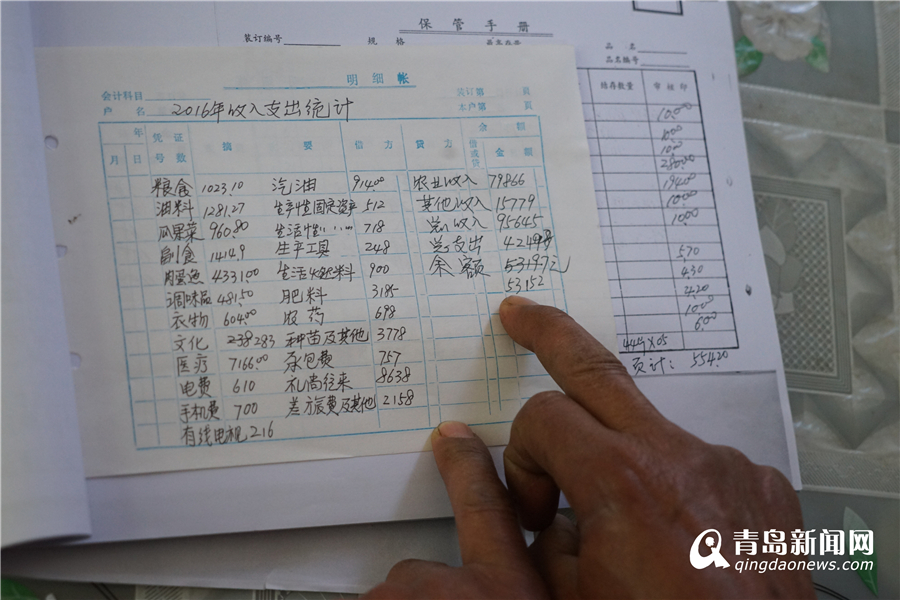 保管手册
装订编号 规 格
品 名
品名编号
结存数量 审核印
1000
280.00
194.00
5.70
4.30
4.20
6.00
页计: 554.20
明细帐
会计科目
户 名 2016年收入支出统计
本户第 頁
年 凭证 摘 要 借 方 贷 方 借或贷 金 额
月 日 号 数 金 额
粮食 1023.10 汽油 914.00 农业收入 79866
油料 1281.27 生产性固定资产 512 其他收入 15779
瓜果菜 960.80 生活性…… 718 总收入 95645
副食 1414.9 生产工具 248 总支出
肉蛋鱼 4331.00 生活燃料 900 余额
调味品 481.50 肥料 3185 53152
衣物 604.00 农药 698
文化 283 种苗及其他 3778
医疗 7166.00 承包费 757
电费 610 礼尚往来 8638
手机费 700 差旅费及其他 2158
有线电视 216
青岛新闻网
qingdaonews.com